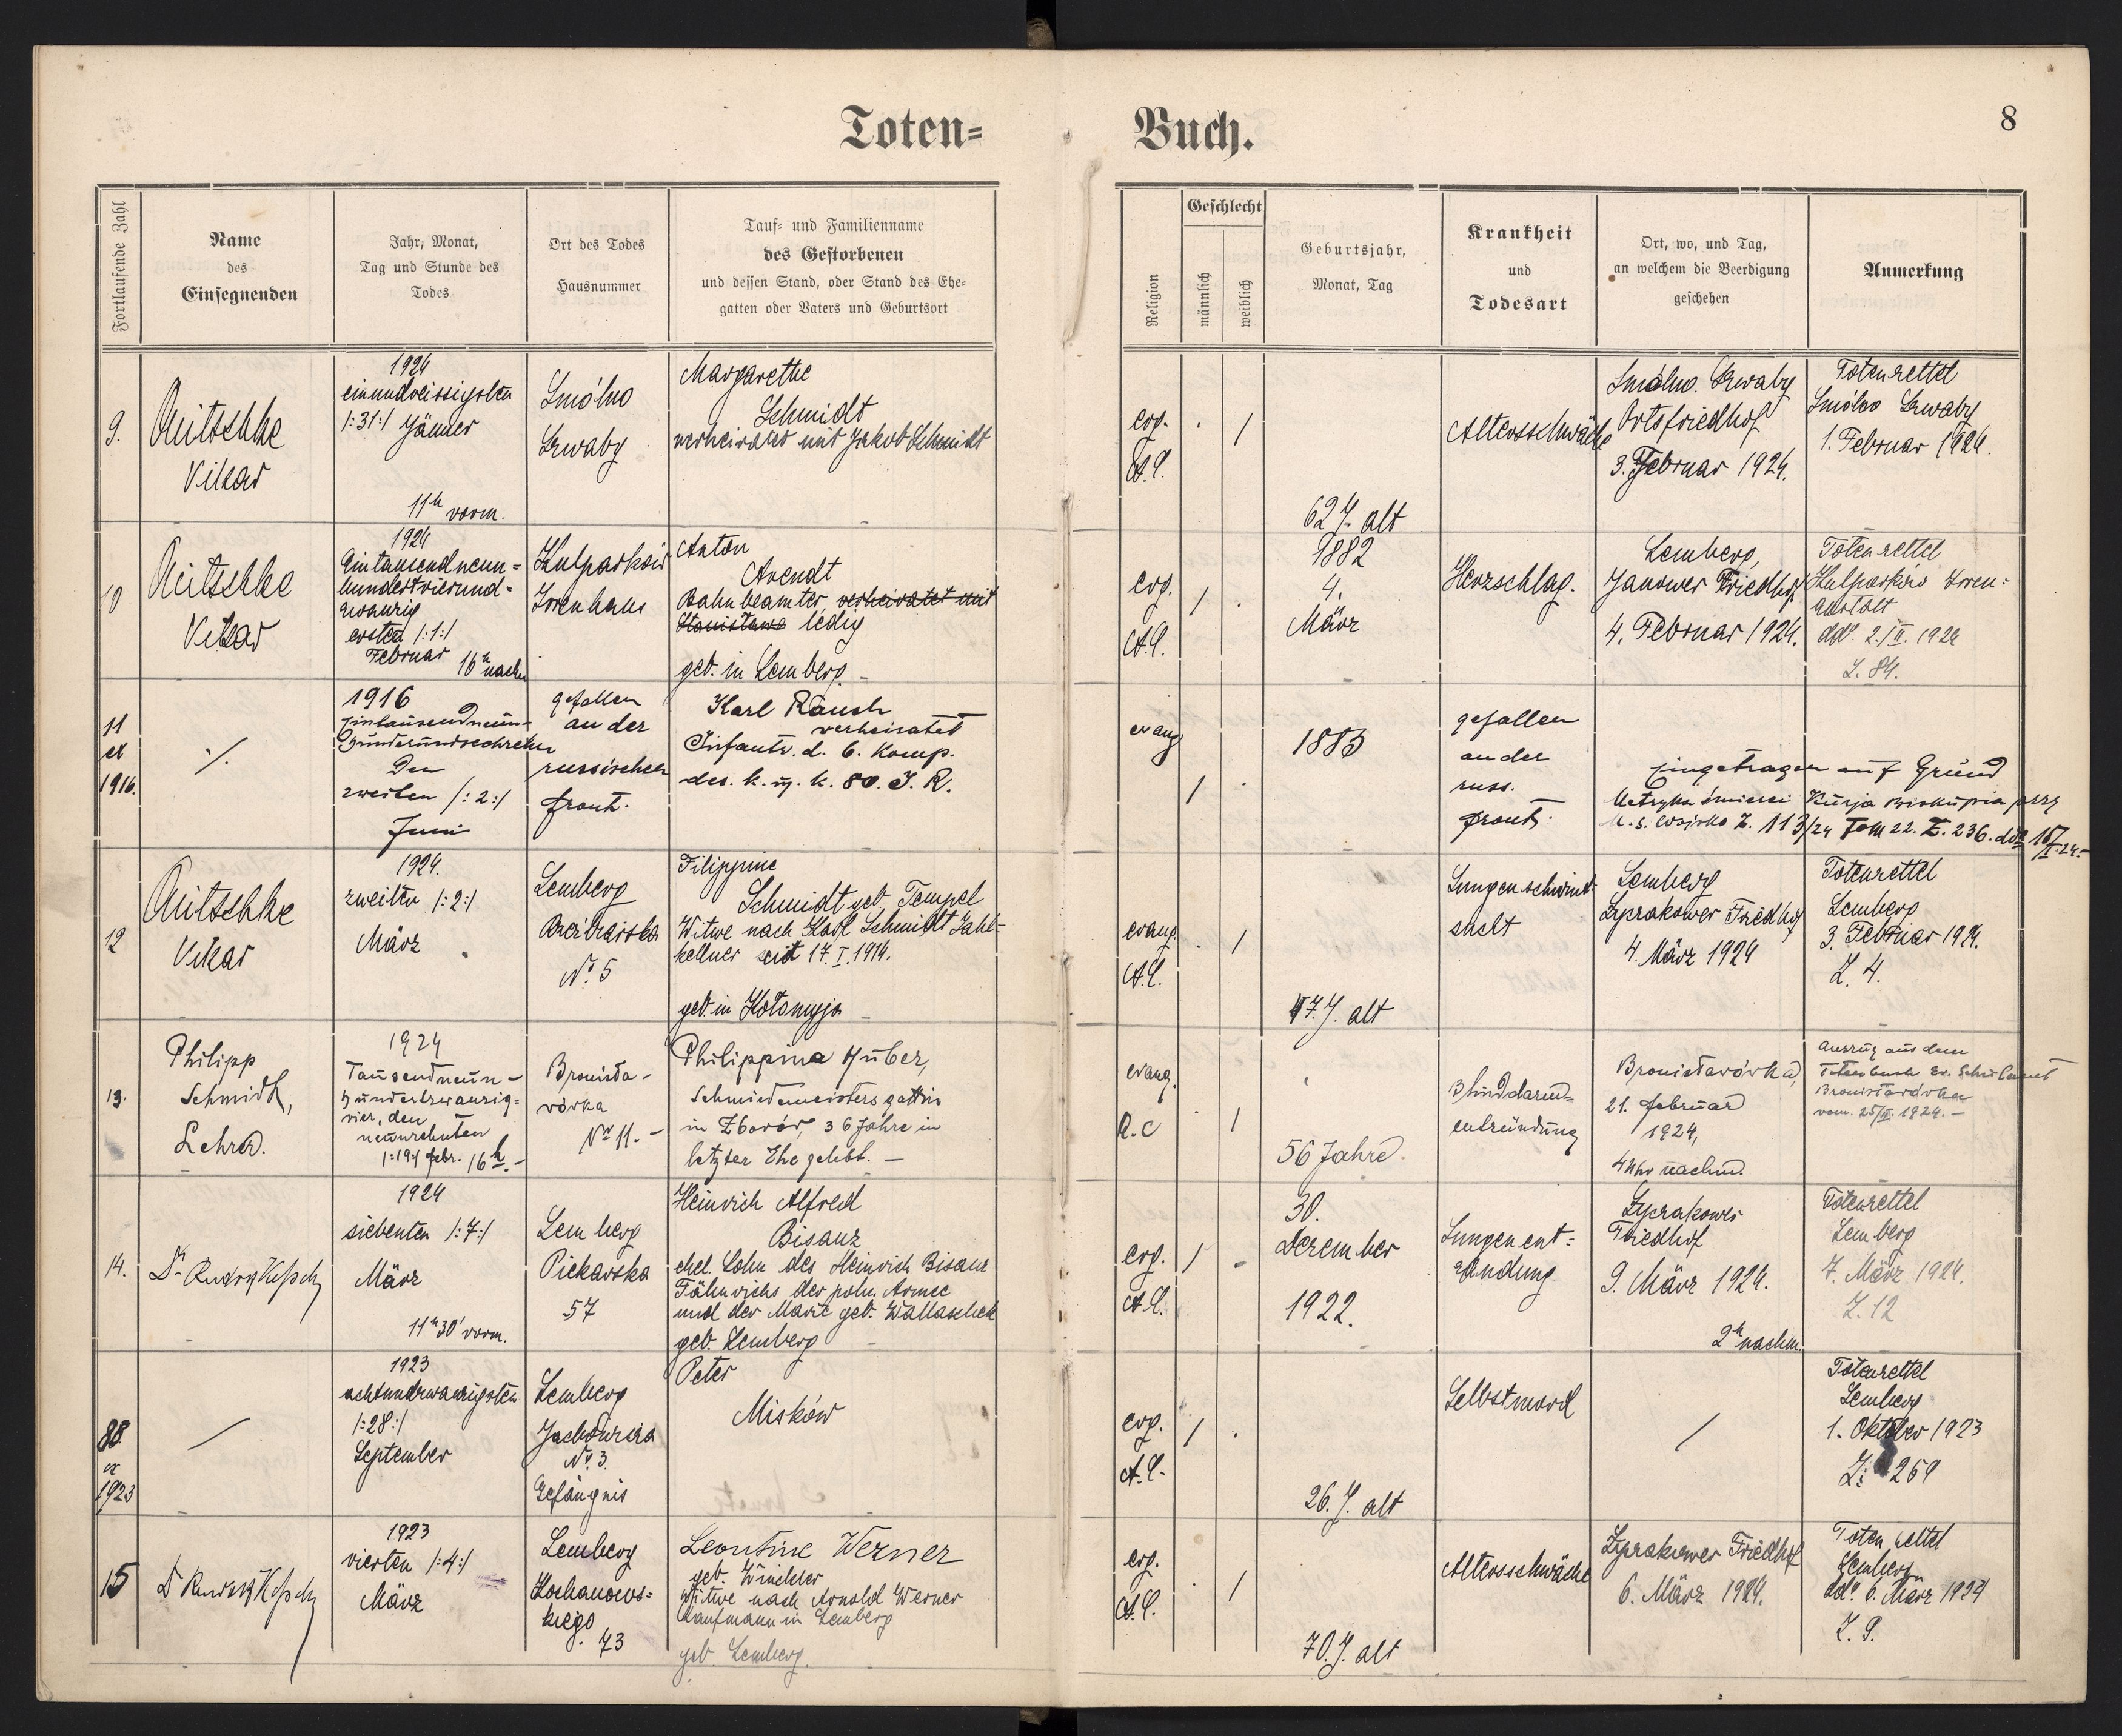 Toten=
Buch.
8
Fortlaufende Zahl
Name
des
Einsegnenden
Jahr, Monat,
Tag und Stunde des
Todes
Ort des Todes
Hausnummer
Tauf= und Familienname
des Gestorbenen
und dessen Stand, oder Stand des Ehe=
gatten oder Vaters und Geburtsort
Religion
Geschlecht
männlich
weiblich
Geburtsjahr,
Monat, Tag
Krankheit
und
Todesart
Ort, wo, und Tag,
an welchem die Beerdigung
geschehen
Anmerkung
9.
Vikar
1924
einunddreissigsten
/:31:/ Jänner
11h vorm.
Smólno
Szwaby
Margarethe
Schmidt
verheiratet mit Jakob Schmidt
evg.
A.C.
/
62 J. alt
Altersschwäche
Smólno Szwaby
Ortsfriedhof
3. Februar 1924.
Totenzettel
Smólno Szwaby
1. Februar 1924.
10
Vikar
1924
Eintausendneun=
hundertvierund=
zwanzig
ersten /:1:/
Februar 16h nachm
Kulparków
Irrenhaus
Anton
Arendt
Bahnbeamter, verheiratet mit
Stanisława ledig
geb. in Lemberg.
evg.
A.C.
/
1882
4.
März
Herzschlag.
Lemberg,
Janower Friedhof
4. Februar 1924.
Totenzettel
Kulparków Irren=
anstalt
ddo. 2./II. 1924
Z. 84.
11
ex
1916.
./.
1916
Eintausendneun-
hundertundsechzehn
Den
zweiten /:2:/
Juni
gefallen
an der
russischen
Front.
Karl Rausch
verheiratet
Infantr. d. 6. Komp.
des. k. u. k. 80. I. R.
evang
/
1883
gefallen
an der
russ.
Front.
Eingetragen auf Grund
Metryka śmierci Kurja Biskupia przy
M. S. Wojsko Z. 113/24 Tom 22. Z. 236. ddo
12
Vikar
1924.
zweiten /:2:/
März
Lemberg
No 5
Filippine
Schmidt geb. Tempel
Witwe nach Karl Schmidt Zahl-
kellner seit 17. I. 1914.
geb. in Kołomyja
evang.
A.C.
/
47. J. alt
Lungenschwind-
sucht
Lemberg
Łyczakower Friedhof
4. März 1924
Totenzettel
Lemberg
3. Februar 1924.
Z. 4.
13.
Philipp
Schmidt,
Lehrer.
1924
Tausendneun-
hundertzwanzig=
vier, den
neunzehnten
/:19:/ febr. 16h.-
Bronisła-
wówka
No 11.-
Philippina Huber,
Schmiedemeisters gattin
in Zborów, 36 Jahre in
letzter Ehe gelebt. -
evang.
A.C
/
56 Jahre.
Blinddarm=
entzündung
Bronisławówka,
21. februar
1924,
4 Uhr nachm.
Auszug aus dem
Totenbuch Ev. Schulamt
Bronisławówka
vom. 25/II. 1924.-
14.
1924
siebenten /:7:/
März
11h30' vorm.
Lemberg
Piekarska
57
Heinrich Alfred
Bisanz
ehel. Sohn des Heinrich Bisanz
Fähnrichs der poln. Armee
und der Marie geb. Wallaschek
geb. Lemberg
evg.
A.C.
/
30.
Dezember
1922.
Lungenent=
zündung
Łyczakower
Friedhof
9. März 1924.
2h nachm.
Totenzettel
Lemberg
7. März 1924.
Z. 12
88
ex
1923
/
1923
achtundzwanzigsten
/:28:/
September
Lemberg
Jachowicza
No. 3.
Gefängnis
Peter
Misków
evg.
A.C.
/
26. J. alt
Selbstmord
/
Totenzettel
Lemberg
1. Oktober 1923
Z: 269
15
1923
vierten /:4:/
März
Lemberg
Kochanows=
kiego
73
Leontine Werner
geb. Winckler
Witwe nach Arnold Werner
Kaufmann in Lemberg
geb. Lemberg.
evg.
A.C.
/
70. J. alt
Altersschwäche
Łyczakower Friedhof
6. März 1924.
Totenzettel
Lemberg
ddo. 6. März 1924
Z. 9.